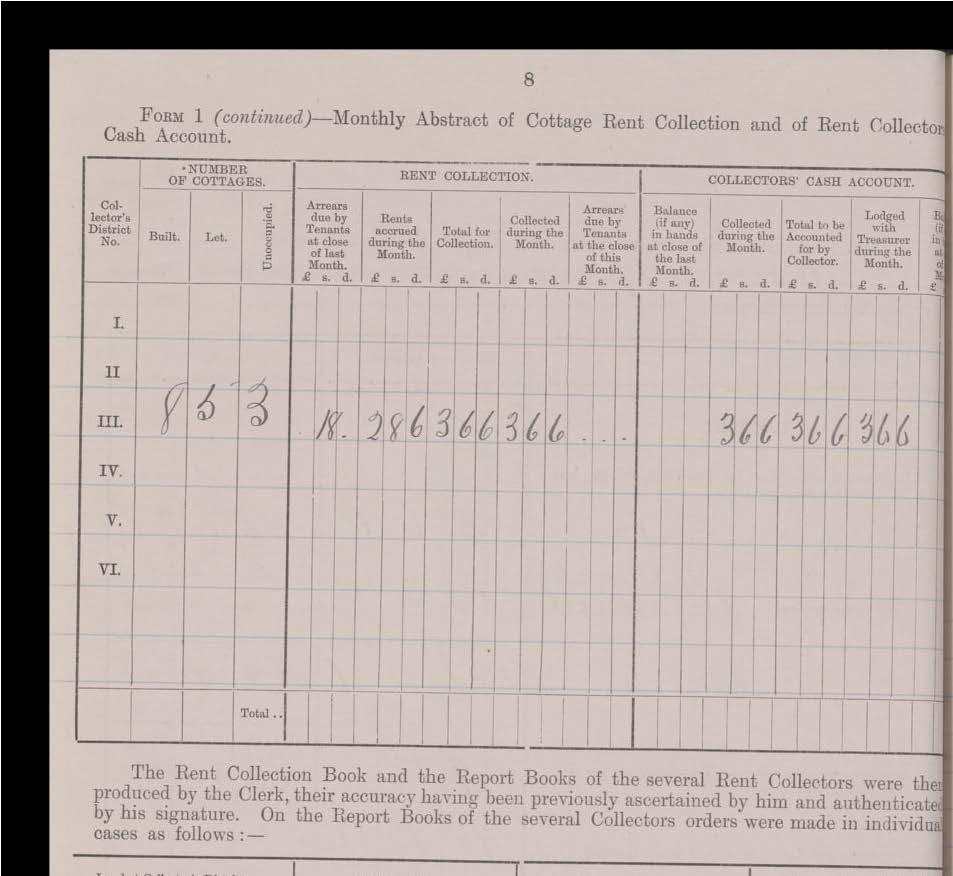 8
FORM 1 (continued)—Monthly Abstract of Cottage Rent Collection and of Rent Collector
Cash Account.
NUMBER OF COTTAGES.
RENT COLLECTION.
COLLECTORS' CASH ACCOUNT.
Collector's District No.
Built.
Let.
Unoccupied.
Arrears due by Tenants at close of last Month.
Rents accrued during the Month.
Total for Collection.
Collected during the Month.
Arrears due by Tenants at the close of this Month.
Balance (if any) in hands at close of the last Month.
Collected during the Month.
Total to be Accounted for by Collector.
Lodged with Treasurer during the Month.
£ s. d. £ s. d. £ s. d. £ s. d. £ s. d. £ s. d. £ s. d. £ s. d. £ s. d. £
I.
II
III. 8 5 3 18 . 2 8 6 3 6 6 3 6 6 . . . 3 6 6 3 6 6 3 6 6
IV.
V.
VI.
Total ..
The Rent Collection Book and the Report Books of the several Rent Collectors were then
produced by the Clerk, their accuracy having been previously ascertained by him and authenticated
by his signature. On the Report Books of the several Collectors orders were made in individual
cases as follows :—